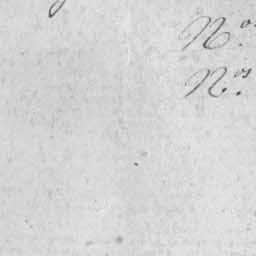 N.º
N.ºˢ